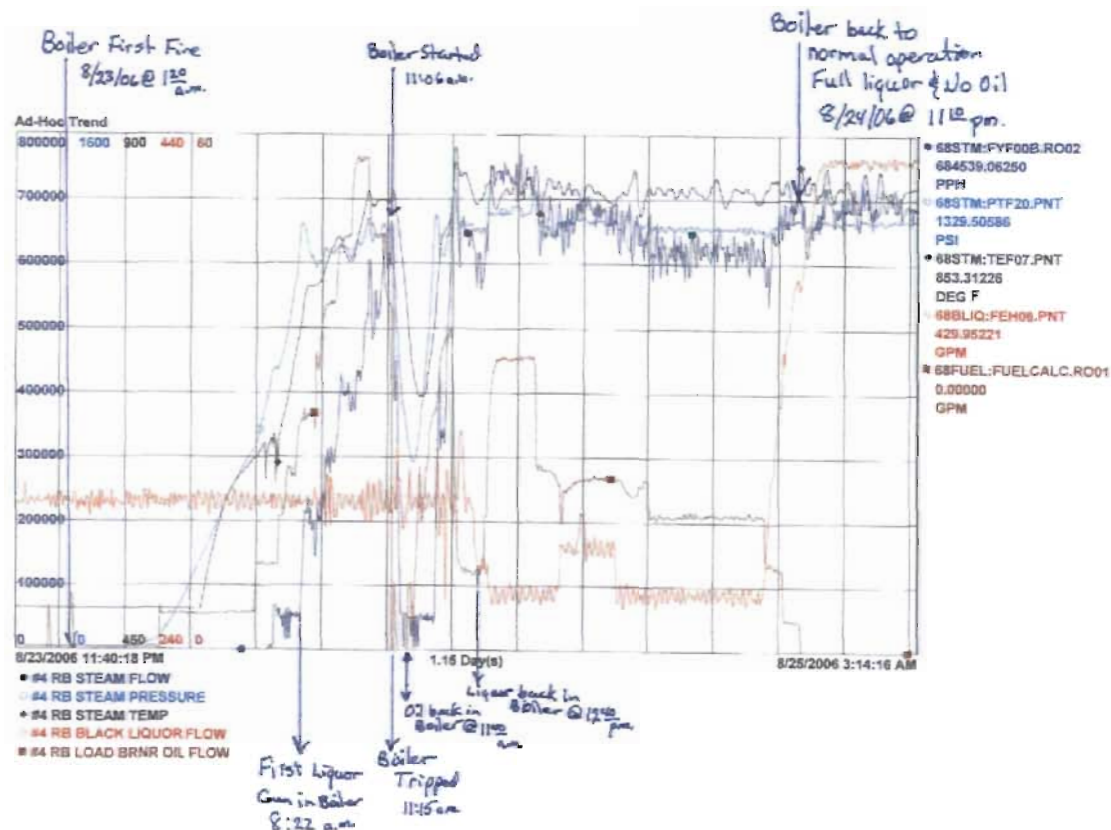 Boiler First Fire
8/23/06 @ 1 20
a.m.
Boiler Started
11:06 a.m.
Boiler back to
normal operation
Full liquor & No Oil
8/24/06 @ 11 10 pm.
Ad-Hoc Trend
800000 1600 900 440 60
700000
600000
500000
400000
300000
200000
100000
0 0 450 240 0
68STM:FYF00B.RO02
684539.06250
PPH
68STM:PTF20.PNT
1329.50586
PSI
68STM:TEF07.PNT
853.31226
DEG F
68BLIQ:FEH06.PNT
429.95221
GPM
68FUEL:FUELCALC.RO01
0.00000
GPM
8/23/2006 11:40:18 PM
1.15 Day(s)
8/25/2006 3:14:16 AM
#4 RB STEAM FLOW
#4 RB STEAM PRESSURE
#4 RB STEAM TEMP
#4 RB BLACK LIQUOR FLOW
#4 RB LOAD BRNR OIL FLOW
First Liquor
Gun in Boiler
8:22 a.m.
Boiler
Tripped
11:15 am
back in
Boiler @
a.m.
Liquor back in
Boiler @
pm.